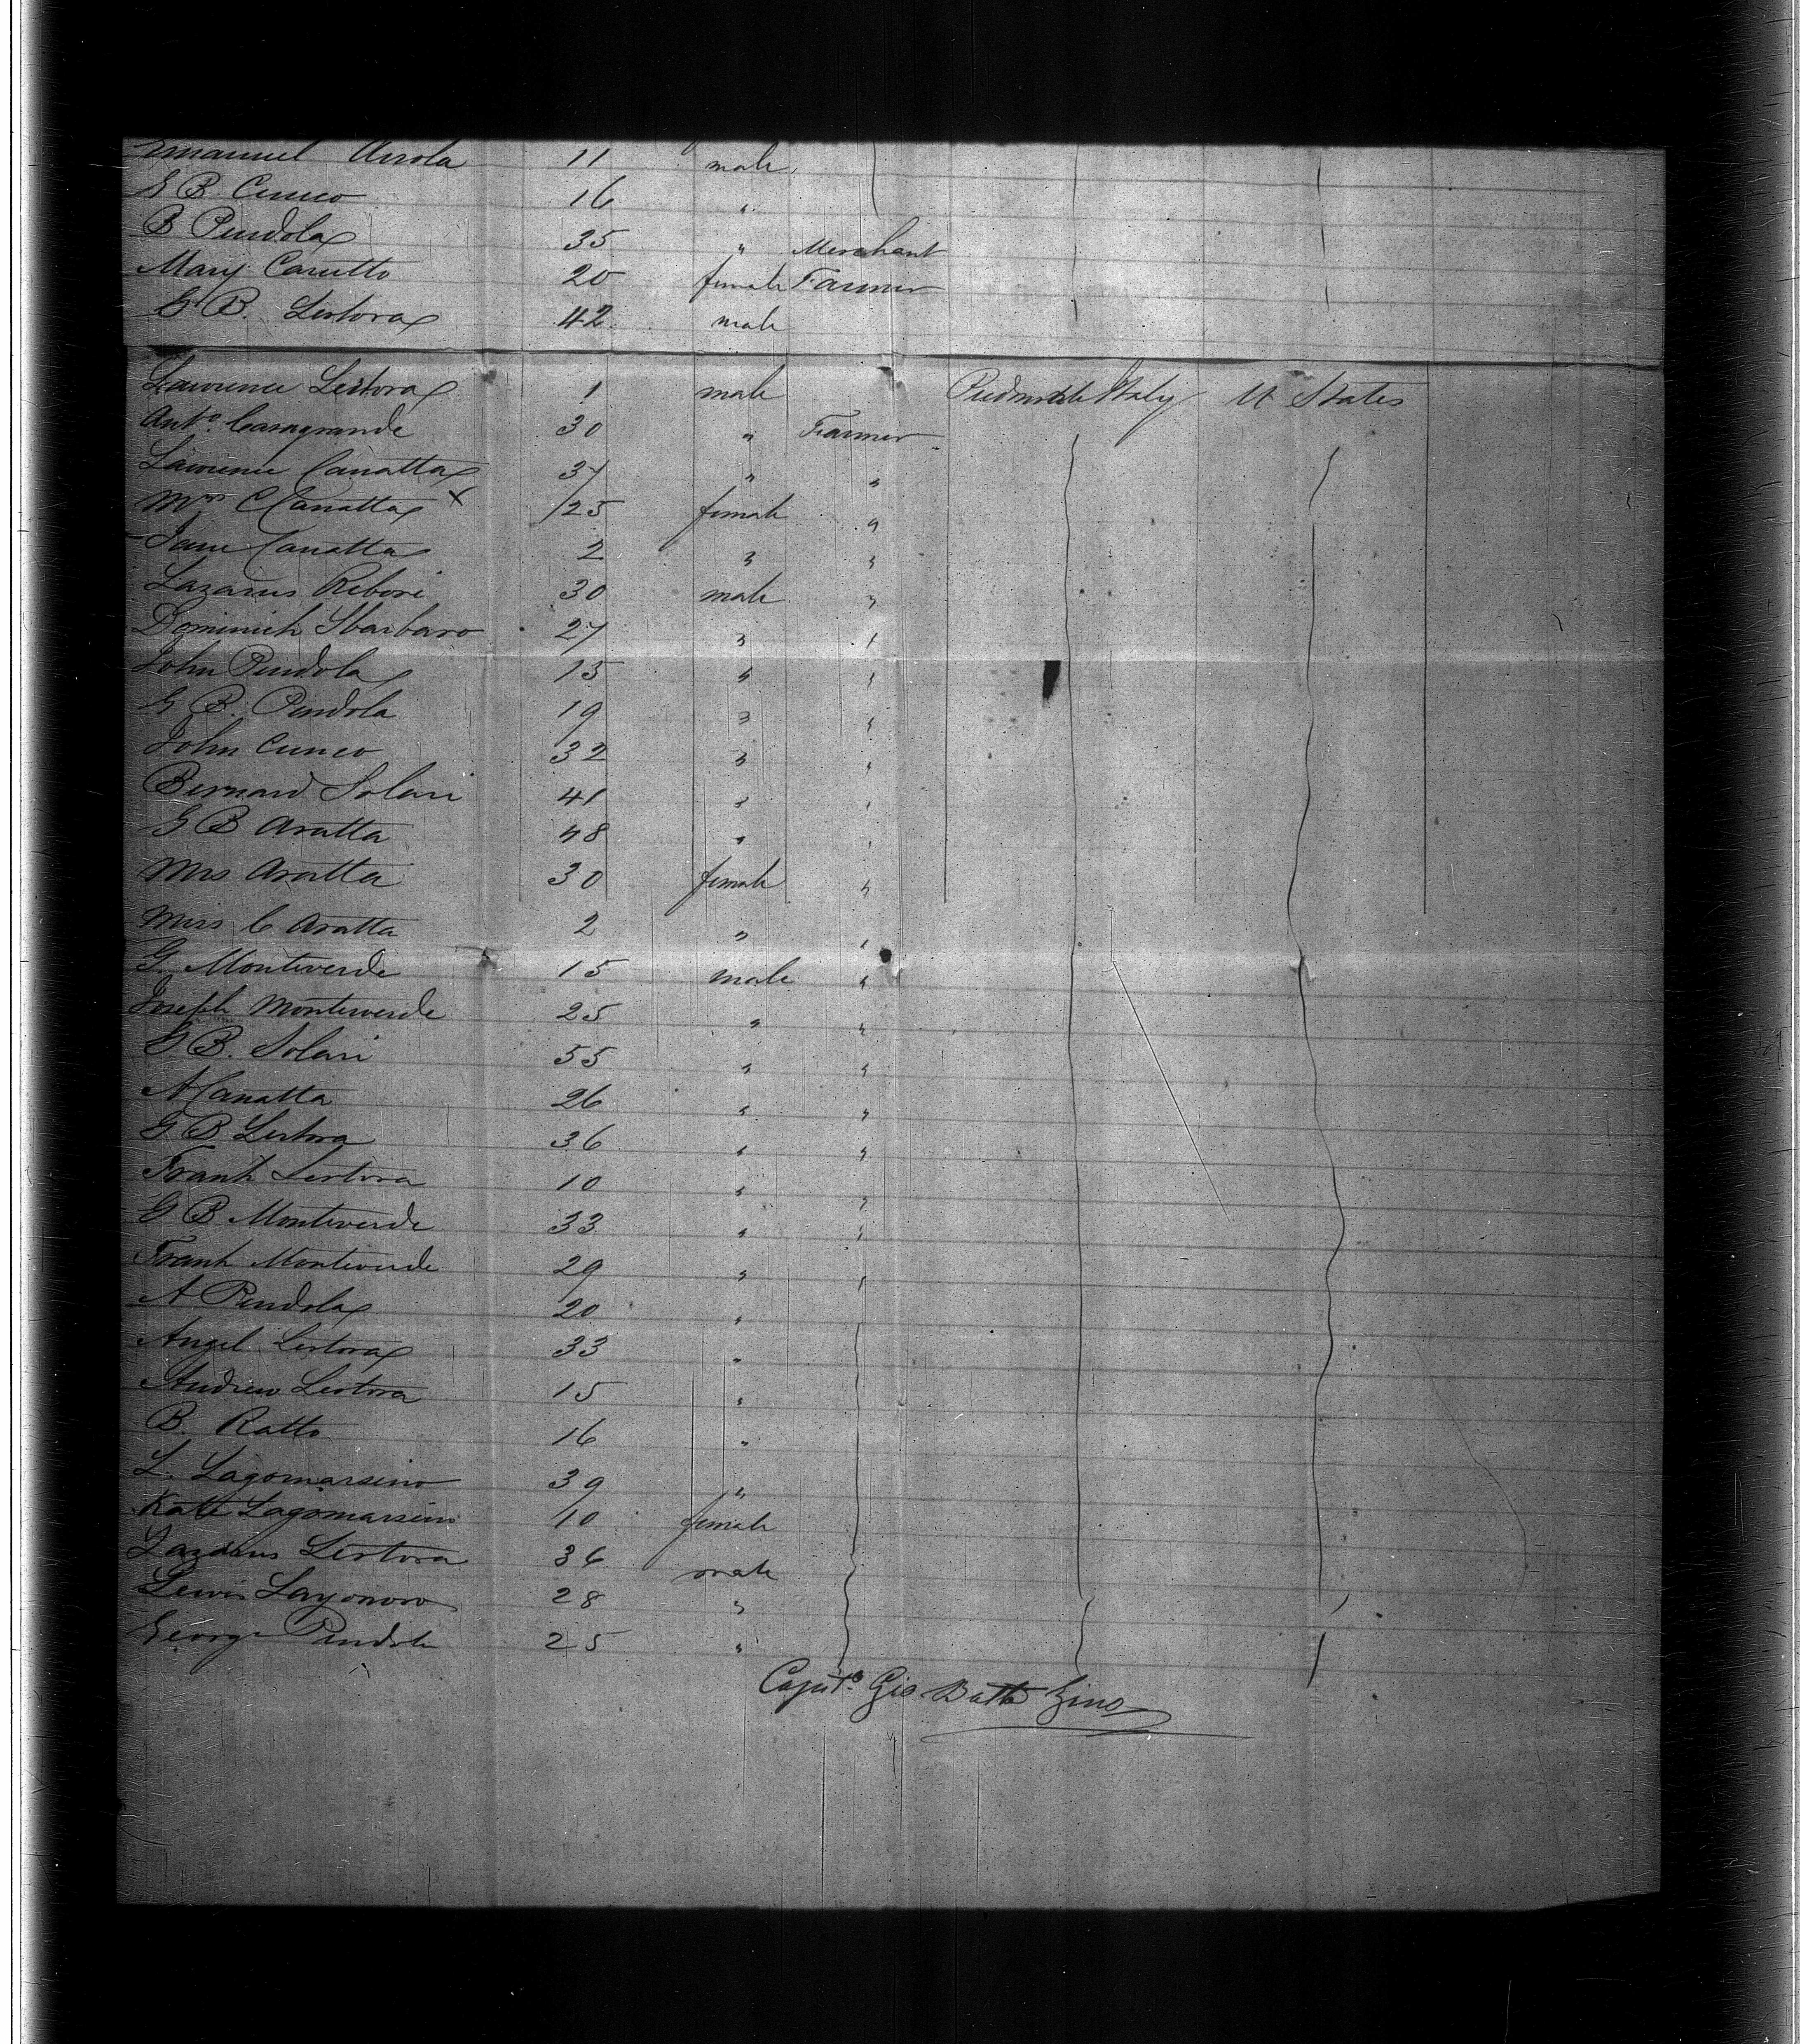 Emanuel Airola 11 male
G B. Cuneo 16 "
B Pendola 35 " Merchant
Mary Canutto 20 female Farmer
G B. Lertora 42 male
Lawrence Lertora 1 male Piedmonte Italy U States
Anto. Casagrande 30 " Farmer
Lawrence Canatta 37 " "
Mrs C Canatta x 25 female "
Jane Canatta 2 " "
Lazarus Rebori 30 male "
Dominick Sbarbaro 27 " "
John Pendola 15 " "
G B. Pendola 19 " "
John Cuneo 32 " "
Bernard Solari 41 " "
G B Aratta 48 " "
Mrs Aratta 30 female "
Miss C Aratta 2 " "
G. Monteverde 15 male "
Joseph Monteverde 25 " "
G B. Solari 55 " "
A Canatta 26 " "
G B Lertora 36 " "
Frank Lertora 10 " "
G B Monteverde 33 " "
Frank Monteverde 29 " "
A Pendola 20 "
Angel Lertora 33 "
Andrew Lertora 15 "
B. Ratto 16 "
L. Lagomarsino 39 "
Kate Lagomarsino 10 female
Lazarus Lertora 36 male
Lewis 28 "
George Pendola 25 "
Capito. Gio Batta Zino